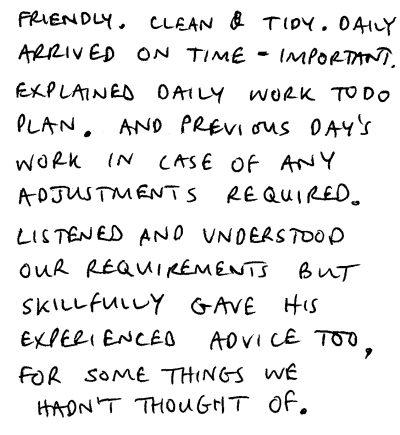 FRIENDLY. CLEAN & TIDY. DAILY
ARRIVED ON TIME - IMPORTANT.
EXPLAINED DAILY WORK TO DO
PLAN. AND PREVIOUS DAY'S
WORK IN CASE OF ANY
ADJUSTMENTS REQUIRED.
LISTENED AND UNDERSTOOD
OUR REQUIREMENTS BUT
SKILLFULLY GAVE HIS
EXPERIENCED ADVICE TOO,
FOR SOME THINGS WE
HADN'T THOUGHT OF.